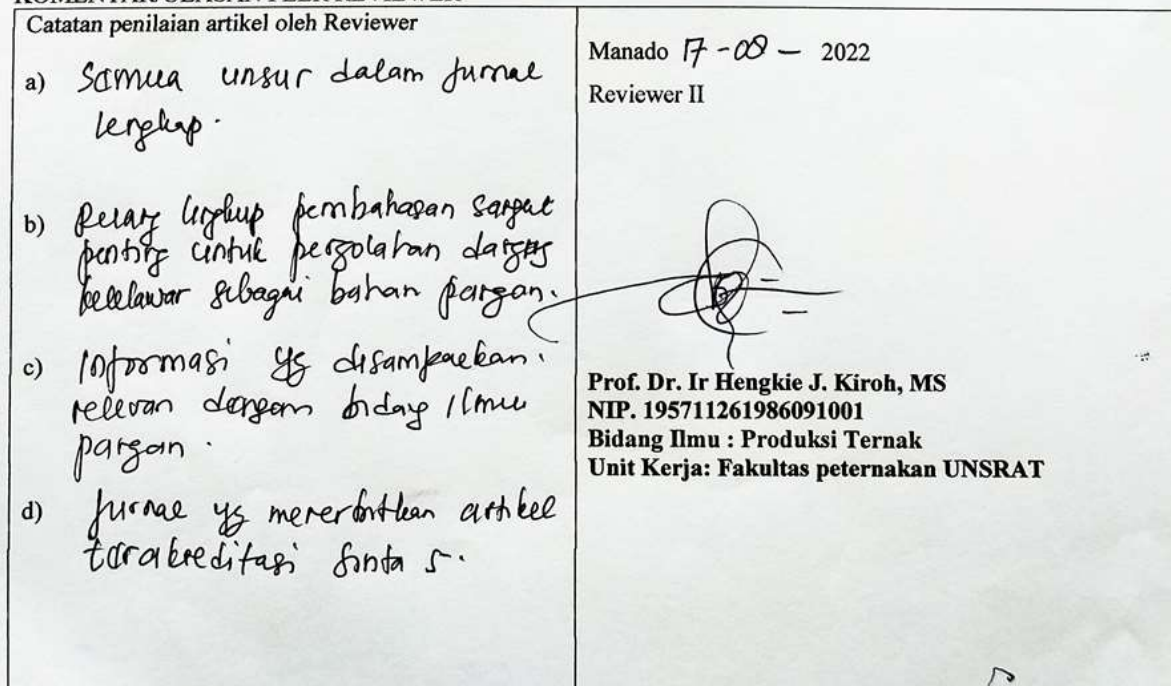 KOMENTAR/ULASAN PEER REVIEWER
Catatan penilaian artikel oleh Reviewer
a) Semua unsur dalam jurnal
lengkap.
b) Ruang lingkup pembahasan sangat
penting untuk pengolahan daging
kelelawar sebagai bahan pangan.
c) Informasi yg disampaikan
relevan dengan bidang ilmu
pangan.
d) Jurnal yg menerbitkan artikel
terakreditasi Sinta 5.
Manado 17-08-2022
Reviewer II
Prof. Dr. Ir Hengkie J. Kiroh, MS
NIP. 195711261986091001
Bidang Ilmu : Produksi Ternak
Unit Kerja: Fakultas peternakan UNSRAT